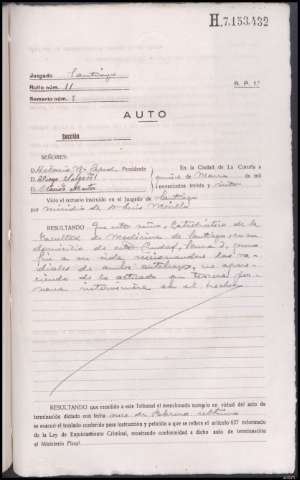 H.7.153.432
Juzgado Santiago
Rollo núm. 11
Sumario núm.
R. P. 1.ª
AUTO
Sección
SEÑORES:
D. Presidente
D.
D.
En la Ciudad de La Coruña a
quince de Marzo de mil
novecientos treinta y
Visto el sumario instruído en el Juzgado de Santiago
por suicidio de D. Luis Morillo
RESULTANDO Que este señor, Catedrático de la
Facultad de Medicina de Santiago, en su
domicilio de esta Ciudad,
fin a su vida seccionándose las ra-
diales de ambos antebrazos, no apare-
ciendo de lo actuado que tercera per-
sona interviniera en el hecho.
RESULTANDO que recibido a este Tribunal el mencionado sumario en virtud del auto de
terminación dictado con fecha once de Febrero último
se evacuó el traslado conferido para instrucción y petición a que se refiere el artículo 627 reformado
de la Ley de Enjuiciamiento Criminal, mostrando conformidad a dicho auto de terminación
el Ministerio Fiscal